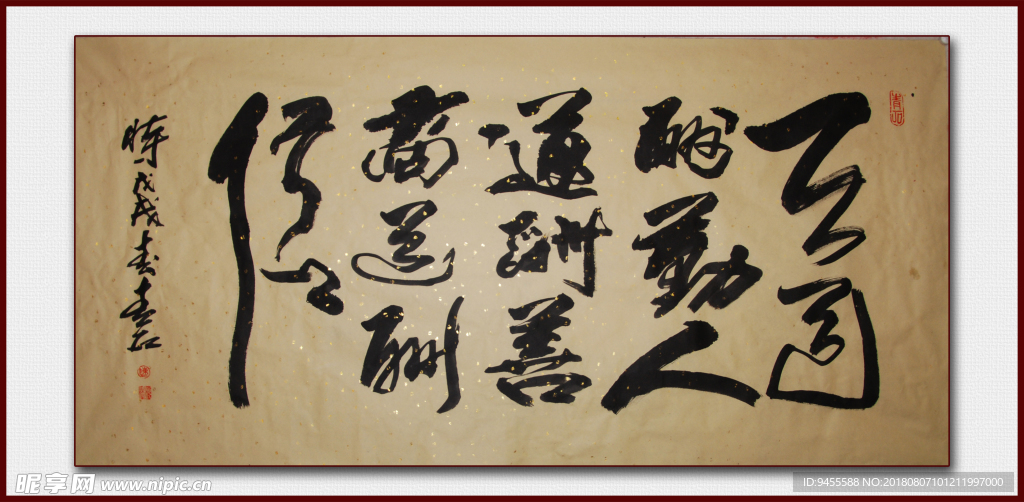 天道
酬勤人
道酬善
商道酬
信
時戊戌春青石
昵享网 www.nipic.cn
ID:9455588 NO:20180807101211997000